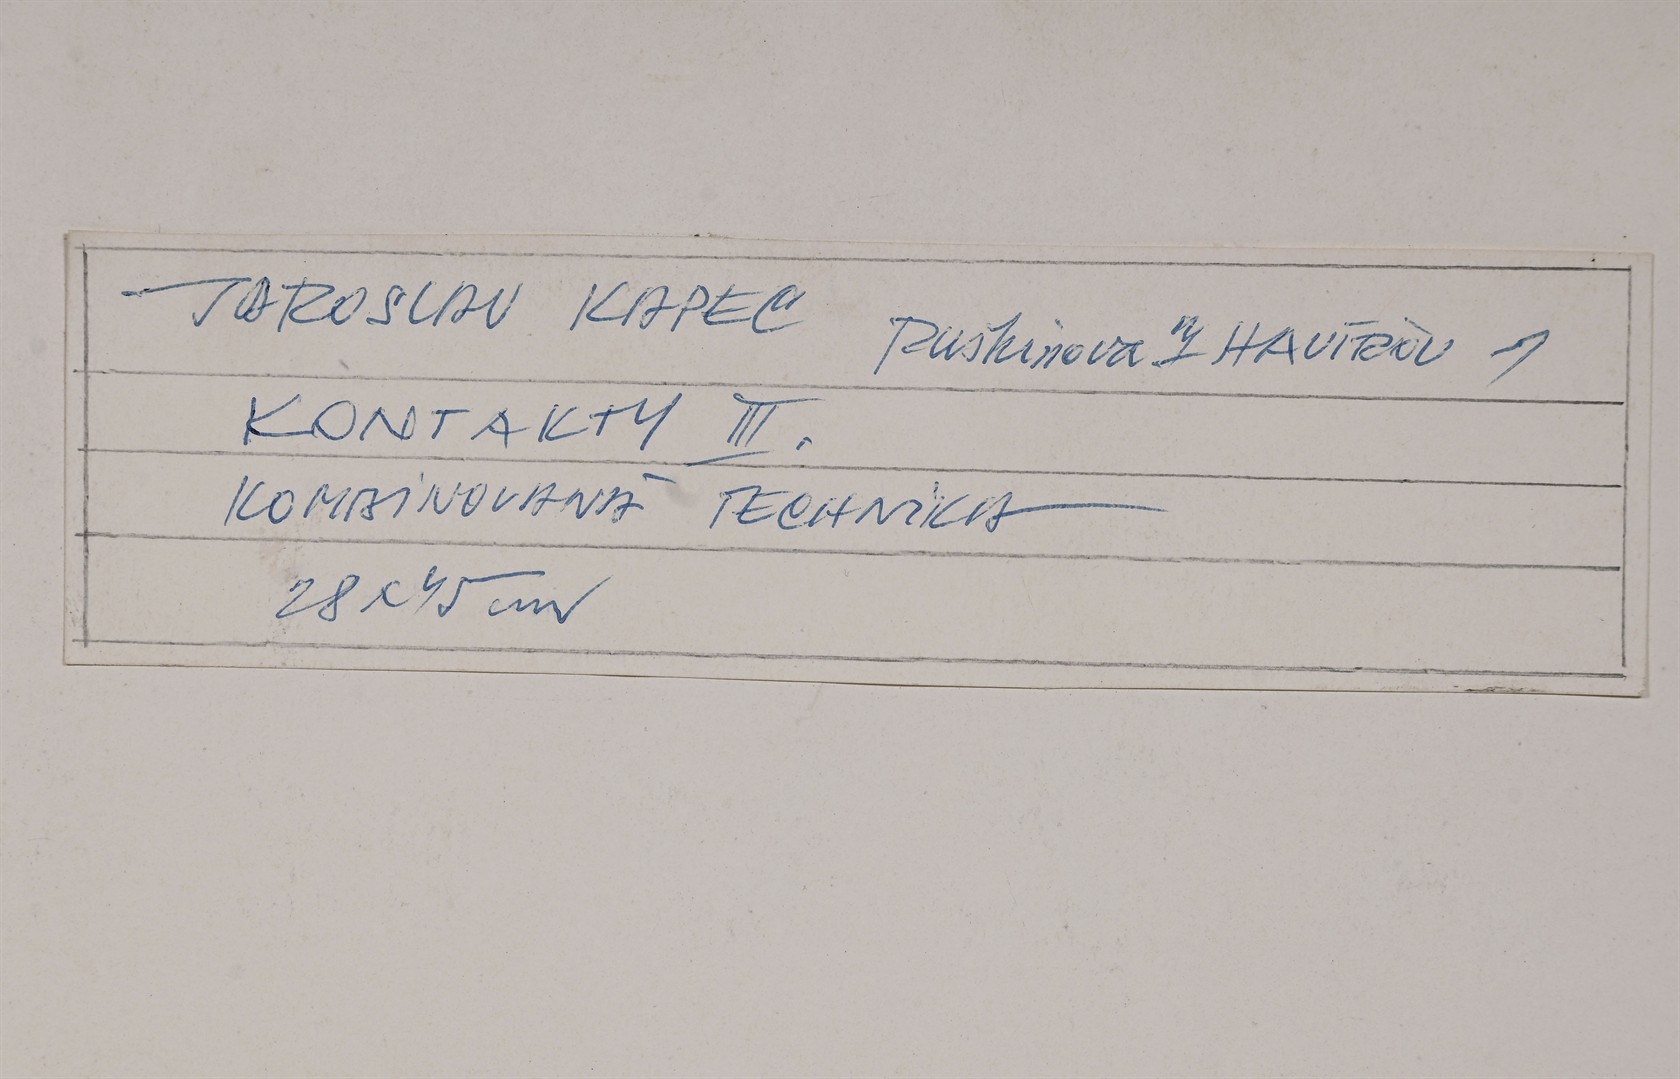 JAROSLAV KAPEC Puškinova HAVÍŘOV 1
KONTAKTY III.
KOMBINOVANÁ TECHNIKA
28 x 45 cm